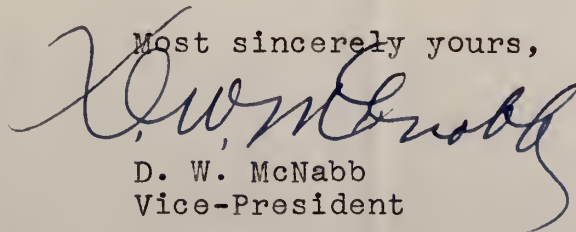 Most sincerely yours,
D. W. McNabb
D. W. McNabb
Vice-President